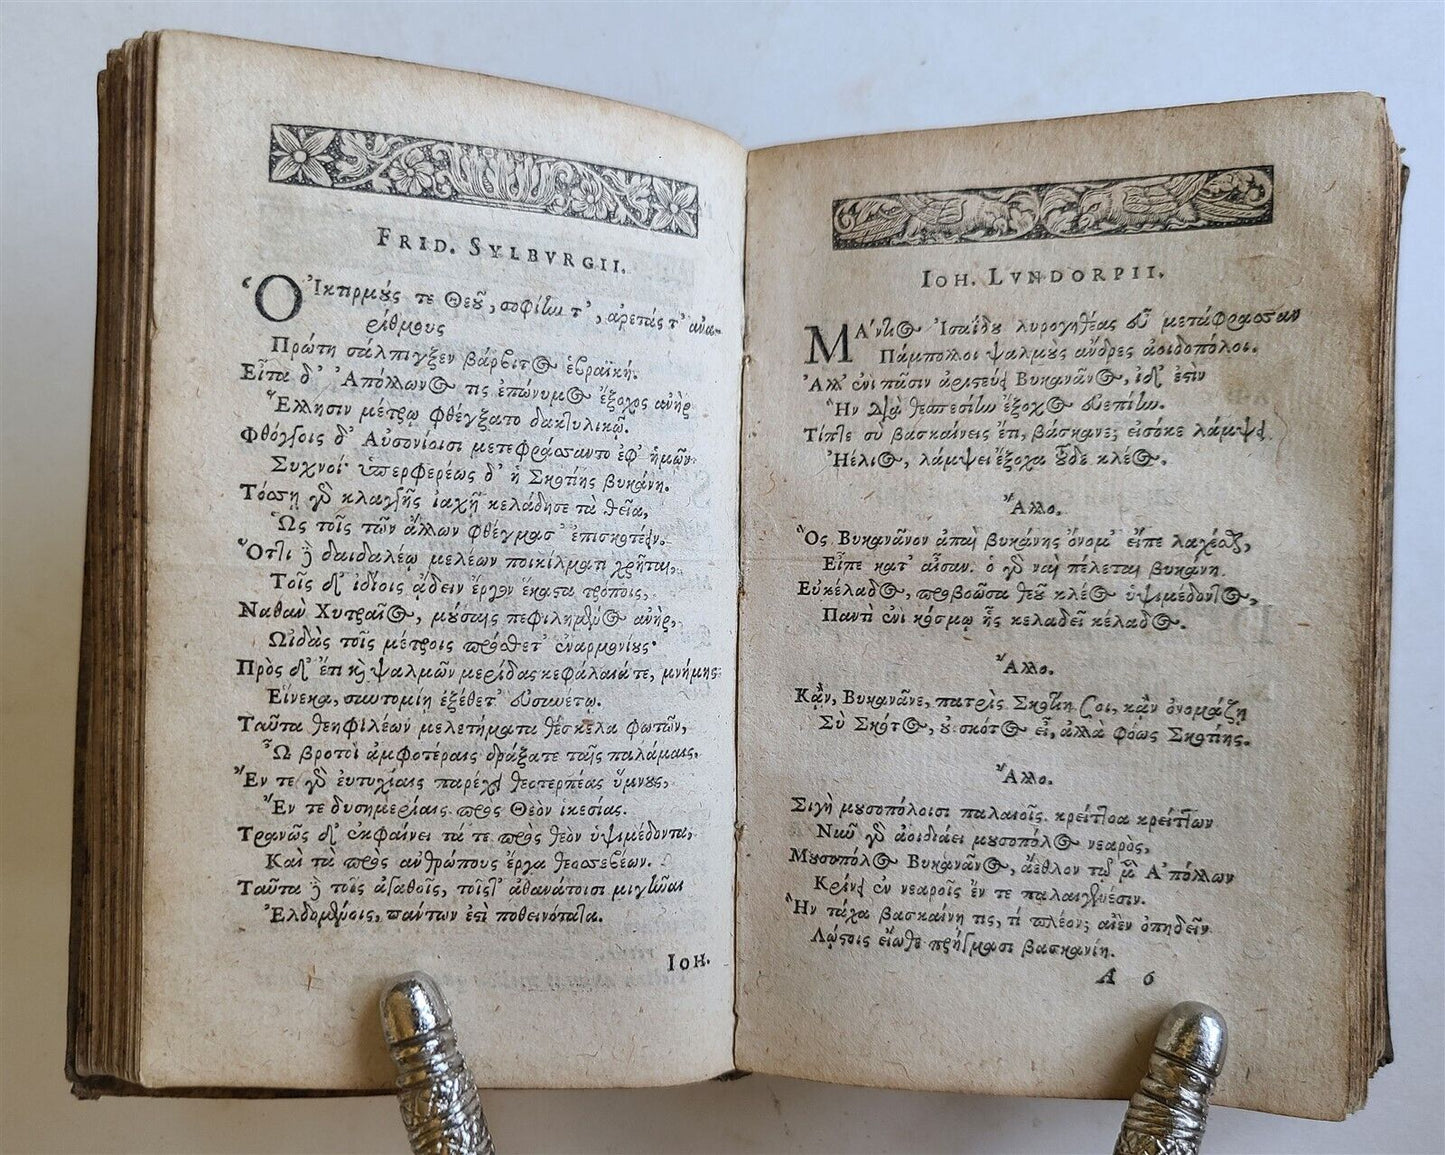 FRID. SYLBVRGII.
Ὁ Ἰκτιρμούς τε Θεοῦ, σοφίlω τ', ἀρετάς τ' ἀνα-
ρίθμους
Πρώτη σάλπιγξεν βάρβιτος ἑβραϊκή.
Εἶτα δ' Ἀπόλλωνος τις ἐπώνυμος ἔξοχος ἀνὴρ
Ἕλλησιν μέτρῳ φθέγξατο δακτυλικῷ.
Φθόγγοις δ' Αὐσονίοισι μετεφράσαντο ἐφ' ἡμῶν
Συχνοί· ὑπερφερέως δ' ἡ Σκοτίης βυκάνη.
Τόσῃ γὸ κλαγγῆς ἰαχῇ κελάδησε τὰ θεῖα,
Ὡς τοῖς τῶν ἄλλων φθέγμασ' ἐπισκοτέειν.
Ὅττι ἢ δαιδαλέῳ μελέων ποικίλματι χρῆται,
Τοῖς δὲ ἰδίοις ᾄδειν ἔργον ἕκαστα τρόποις,
Ναθὰν Χυτραῖος, μούσαις πεφιλημένος ἀνὴρ,
Ὠιδὰς τοῖς μέτροις πρόσθετ' ἐναρμονίους·
Πρὸς δὲ ἔπι καὶ ψαλμῶν μερίδας κεφάλαιά τε, μνήμης
Εἵνεκα, συντομίη ἐξέθετ' εὐσυνέτῳ.
Ταῦτα θεηφιλέων μελετήματα θέσκελα φωτῶν,
Ὦ βροτοὶ ἀμφοτέραις δράξατε ταῖς παλάμαις.
Ἔν τε γὸ εὐτυχίαις παρέχει θεοτερπέας ὕμνους,
Ἔν τε δυσημερίαις πρὸς Θεὸν ἱκεσίας.
Τρανῶς δὲ ἐκφαίνει τά τε πρὸς θεὸν ὑψιμέδοντα,
Καὶ τὰ πρὸς ἀνθρώπους ἔργα θεοσεβέων.
Ταῦτα ἢ τοῖς ἀγαθοῖς, τοῖς ἀθανάτοισι μιγῆναι
Ἐλδομένοις, πάντων ἐστὶ ποθεινότατα.
IOH.
IOH. LVNDORPII.
ΜΆντιος Ἰσαίδου λυρογηθέας εὖ μετάφρασαν
Πάμπολλοι ψαλμοὺς ἄνδρες ἀοιδοπόλοι.
Ἀλλ' ἐνὶ πᾶσιν ἀριστεύει Βυκανᾶνος, ἰδὲ ἐστὶν
Ἢν διὰ θεσπεσίlω ἔξοχος εὐεπίlω.
Τίπτε σὺ βασκαίνεις ἔτι, βάσκανε; εἰσόκε λάμψει
Ἥλιος, λάμψει ἔξοχα τοῦδε κλέος.
Ἄλλο.
Ὃς Βυκανᾶνον ἀπαὶ βυκάνης ὄνομ' εἶπε λαχέσθαι,
Εἶπε κατ' αἶσαν. ὁ γὸ ναὶ πέλεται βυκάνη
Εὐκέλαδος, προβοῶσα θεοῦ κλέος ὑψιμέδοντος,
Παντὶ ἐνὶ κόσμῳ ἧς κελαδεῖ κέλαδος.
Ἄλλο.
Κἂν, Βυκανᾶνε, πατρὶς Σκοτίη σοι, κἂν ὀνομάζῃ
Σὺ Σκότος, οὐ σκότος εἶ, ἀλλὰ φόως Σκοτίης.
Ἄλλο.
Σιγῇ μουσοπόλοισι παλαιοῖς. κρείττοα κρείττων
Νῦν γὸ ἀοιδιάει μουσοπόλος νεαρὸς,
Μουσοπόλος Βυκανᾶνος, ἄεθλον τῷ μὲν Ἀπόλλων
Κρίνει ἐν νεαροῖς ἔν τε παλαιγενέσιν.
Ἢν τάχα βασκαίνῃ τις, τί πλέον; αἰὲν ὀπηδεῖν
Λῴστοις εἴωθε πρήγμασι βασκανίη.
A 6